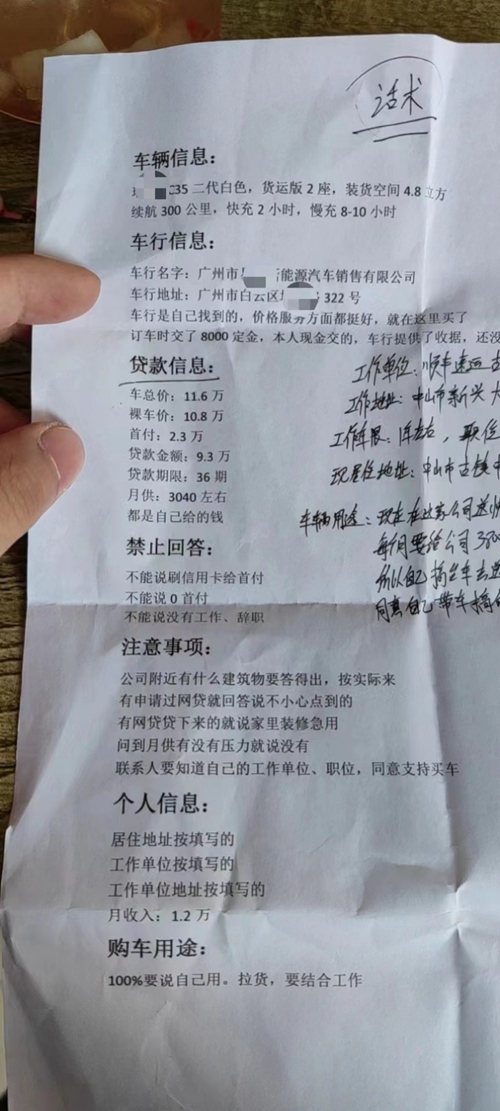 话术
车辆信息：
35 二代白色，货运版 2 座，装货空间 4.8 立方
续航 300 公里，快充 2 小时，慢充 8-10 小时
车行信息：
车行名字：广州市 能源汽车销售有限公司
车行地址：广州市白云区 322 号
车行是自己找到的，价格服务方面都挺好，就在这里买了
订车时交了 8000 定金，本人现金交的，车行提供了收据，还没
贷款信息：
车总价：11.6 万
裸车价：10.8 万
首付：2.3 万
贷款金额：9.3 万
贷款期限：36 期
月供：3040 左右
都是自己给的钱
工作单位：顺丰速运
工作地址：中山市新兴大
工作年限：1年左右，职位
现居住地址：中山市古镇
车辆用途：现在在这家公司送
每月要给公司
所以自己搞台车去
同意自己带车搞
禁止回答：
不能说刷信用卡给首付
不能说 0 首付
不能说没有工作、辞职
注意事项：
公司附近有什么建筑物要答得出，按实际来
有申请过网贷就回答说不小心点到的
有网贷贷下来的就说家里装修急用
问到月供有没有压力就说没有
联系人要知道自己的工作单位、职位，同意支持买车
个人信息：
居住地址按填写的
工作单位按填写的
工作单位地址按填写的
月收入：1.2 万
购车用途：
100%要说自己用。拉货，要结合工作